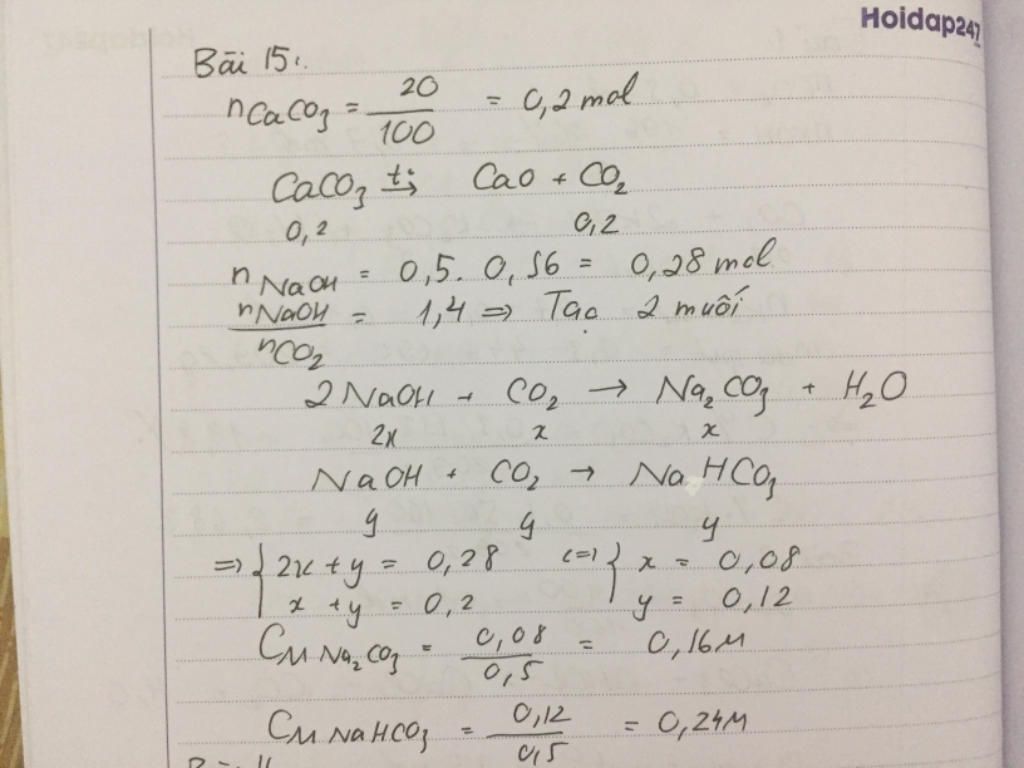 Hoidap247
Bài 15:
nCaCO3 = 20/100 = 0,2 mol
CaCO3 t°→ CaO + CO2
0,2 0,2
nNaOH = 0,5. 0,56 = 0,28 mol
nNaOH/nCO2 = 1,4 => Tạo 2 muối
2NaOH + CO2 → Na2CO3 + H2O
2x x x
NaOH + CO2 → NaHCO3
y y y
=> { 2x + y = 0,28 <=> { x = 0,08
x + y = 0,2 y = 0,12
CM Na2CO3 = 0,08/0,5 = 0,16M
CM NaHCO3 = 0,12/0,5 = 0,24M